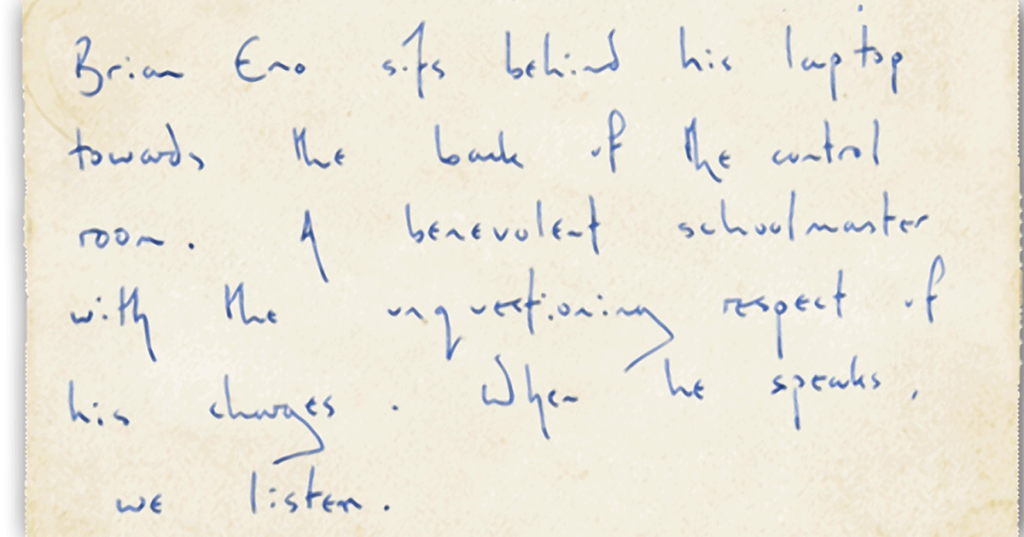 Brian Eno sits behind his laptop
towards the back of the control
room. A benevolent schoolmaster
with the unquestioning respect of
his charges. When he speaks,
we listen.